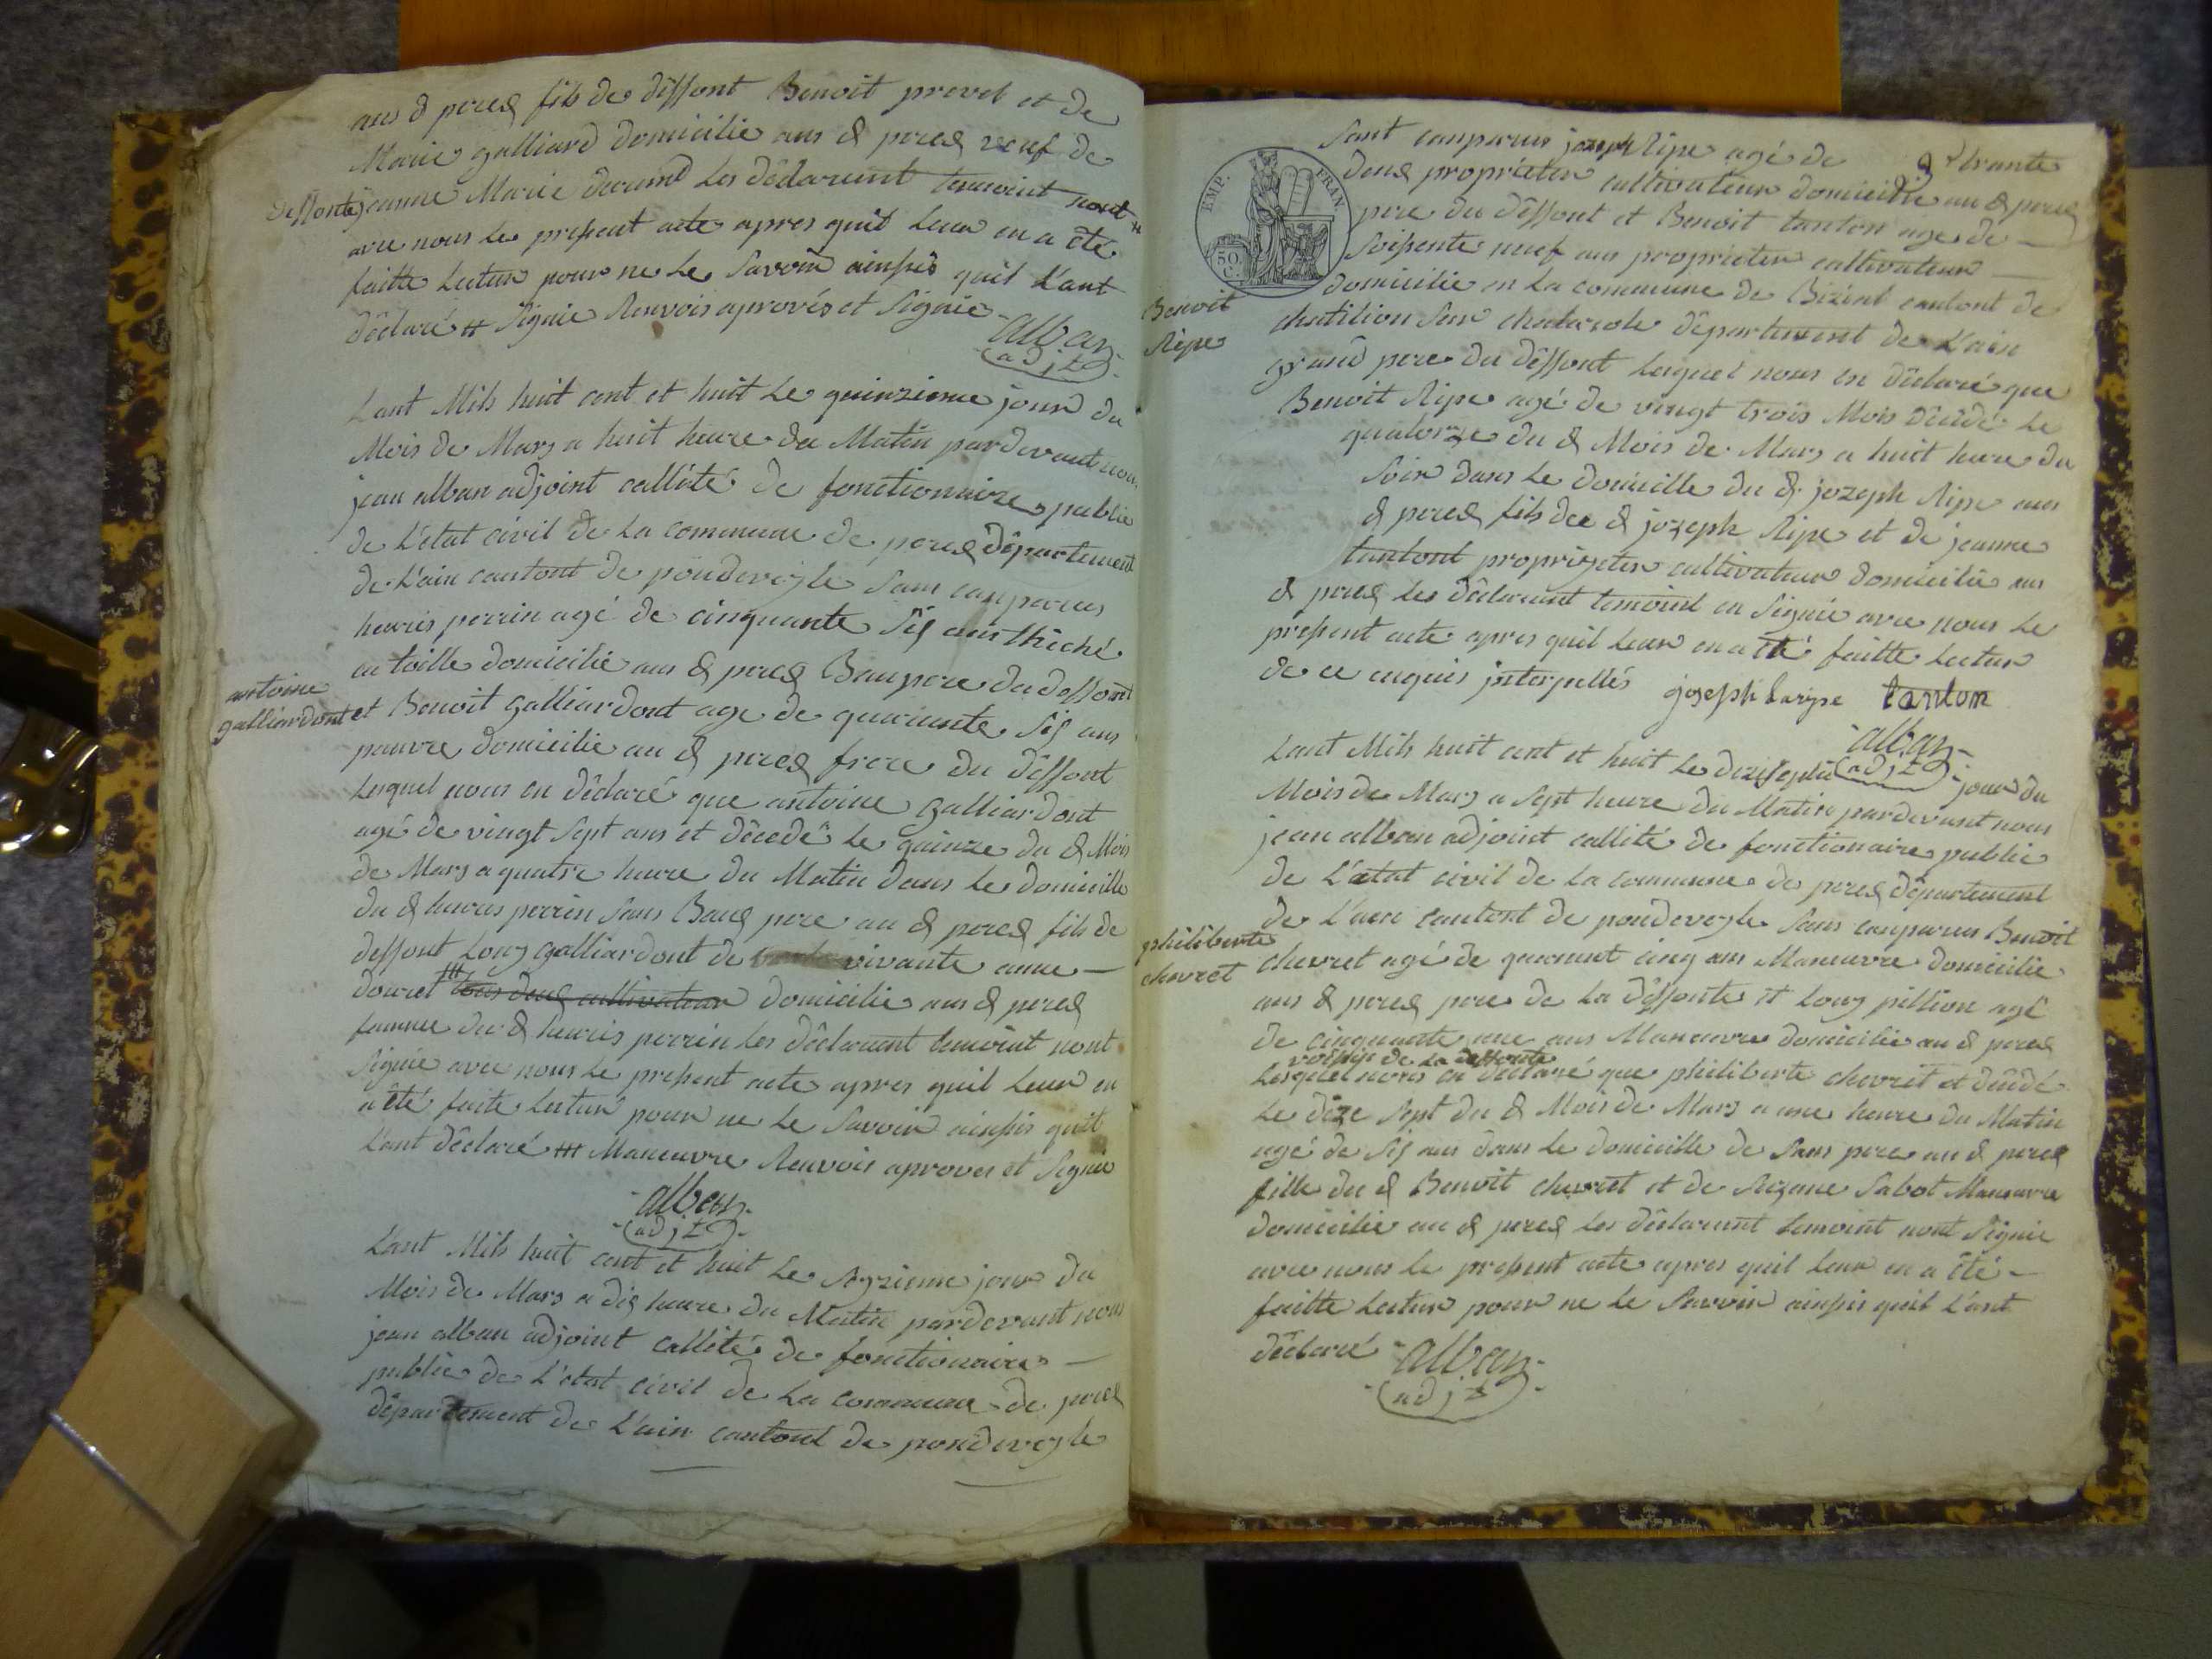 aus d perex fils de deffont Benoit prevel et de
Marie galliard domicilie aus d perex veuf de
deffonte jeanne Marie durand les declarant temoint nont #
avec nous le present acte apres quil leur en a été
faitte lectur pour ne le Savoir ainssis quil L'ant
déclaré # Signie Renvois aprovés et Signie
alban
adjt
Lant Mils huit cent et huit le quinzieme jour du
Mois de Mars a huit heure du Matin pardevant nous
jean alban adjoint callité de fonctionaire public
de L'état civil de la commune de perex département
de L'ain cantont de pondeveyle Sant conparus
henris perrin agé de cinquante Six ans thiché
en toille domicilié aus d perex Beaupere du deffont
antoine
galliardont
et Benoit galliardont age de quarante Six ans
pauvre domicilie au d perex frere du déffont
Lesquel nous en déclaré que antoine galliardont
agé de vingt Sept ans et décedé le quinze du d Mois
de Mars a quatre heure du Matin dans le domicille
du d henris perrin Sans Baux pere au d perex fils de
deffont Louy galliardont de vivante anne
douret ## tous deux cultivateur domicilie aus d perex
famme du d henris perrin les déclarant temoint nont
Signie avec nous le present acte apres quil leur en
a été faite lectur pour ne le Savoir ainssis quil
L'ant déclaré ## Maneuvre Renvois aprover et Signie
alban
adjt
L'ant Mils huit cent et huit le Seyzieme jour du
Mois de Mars a dix heure du Matin pardevant nous
jean alban adjoint callité de fonctionaire
public de L'état civil de la commune de perex
département de L'ain cantont de pondeveyle
EMP. FRAN.
50 C.
Sant conparus jozeph Ripe agé de trante
deux proprieter cultivateur domicilie au d perex
pere du déffont et Benoit tanton age de
Soissente neuf ans proprieter cultivateur
domicilie en la commune de Bizint cantont de
Benoit
Ripe
chatilion Sur chalarole département de L'ain
grand pere du déffont Lesquel nous en déclaré que
Benoit Ripe agé de vingt trois Mois décédé le
quatorze du d Mois de Mars a huit heure du
Soir dans le domicille du d jozeph Ripe aus
d perex fils du d jozeph Ripe et de jeanne
tantont propriyeter cultivateur domicilie aus
d perex les déclarant temoint en Signie avec nous le
present acte apres quil leur en a été faitte lectur
de ce enquis interpellés
joseph laripe tanton
alban
adjt
Lant Mils huit cent et huit le diziseptie jour du
Mois de Mars a Sept heure du Matin pardevant nous
jean alban adjoint callité de fonctionaire public
de L'état civil de la commune de perex département
de L'ain cantont de pondeveyle Sans conparus Benoit
philiberte
chevret
chevret agé de quarant cinq ans Maneuvre domicilie
aus d perex pere de la déffonte et Louy pillion agé
de cinquante une ans Maneuvre domicilie au d perex
voissin de la deffonte
Lesquel nous en déclaré que philiberte chevret et décédé
Le dize Sept du d Mois de Mars a une heure du Matin
agé de Six ans dans le domicille de Sans pere au d perex
fille du d Benoit chevret et de Suzane Sabot Maneuvre
domicilie au d perex les déclarant temoint nont Signie
avec nous le present acte apres quil leur en a été
faitte lectur pour ne le Savoir ainssis quil L'ant
déclaré
alban
adjt